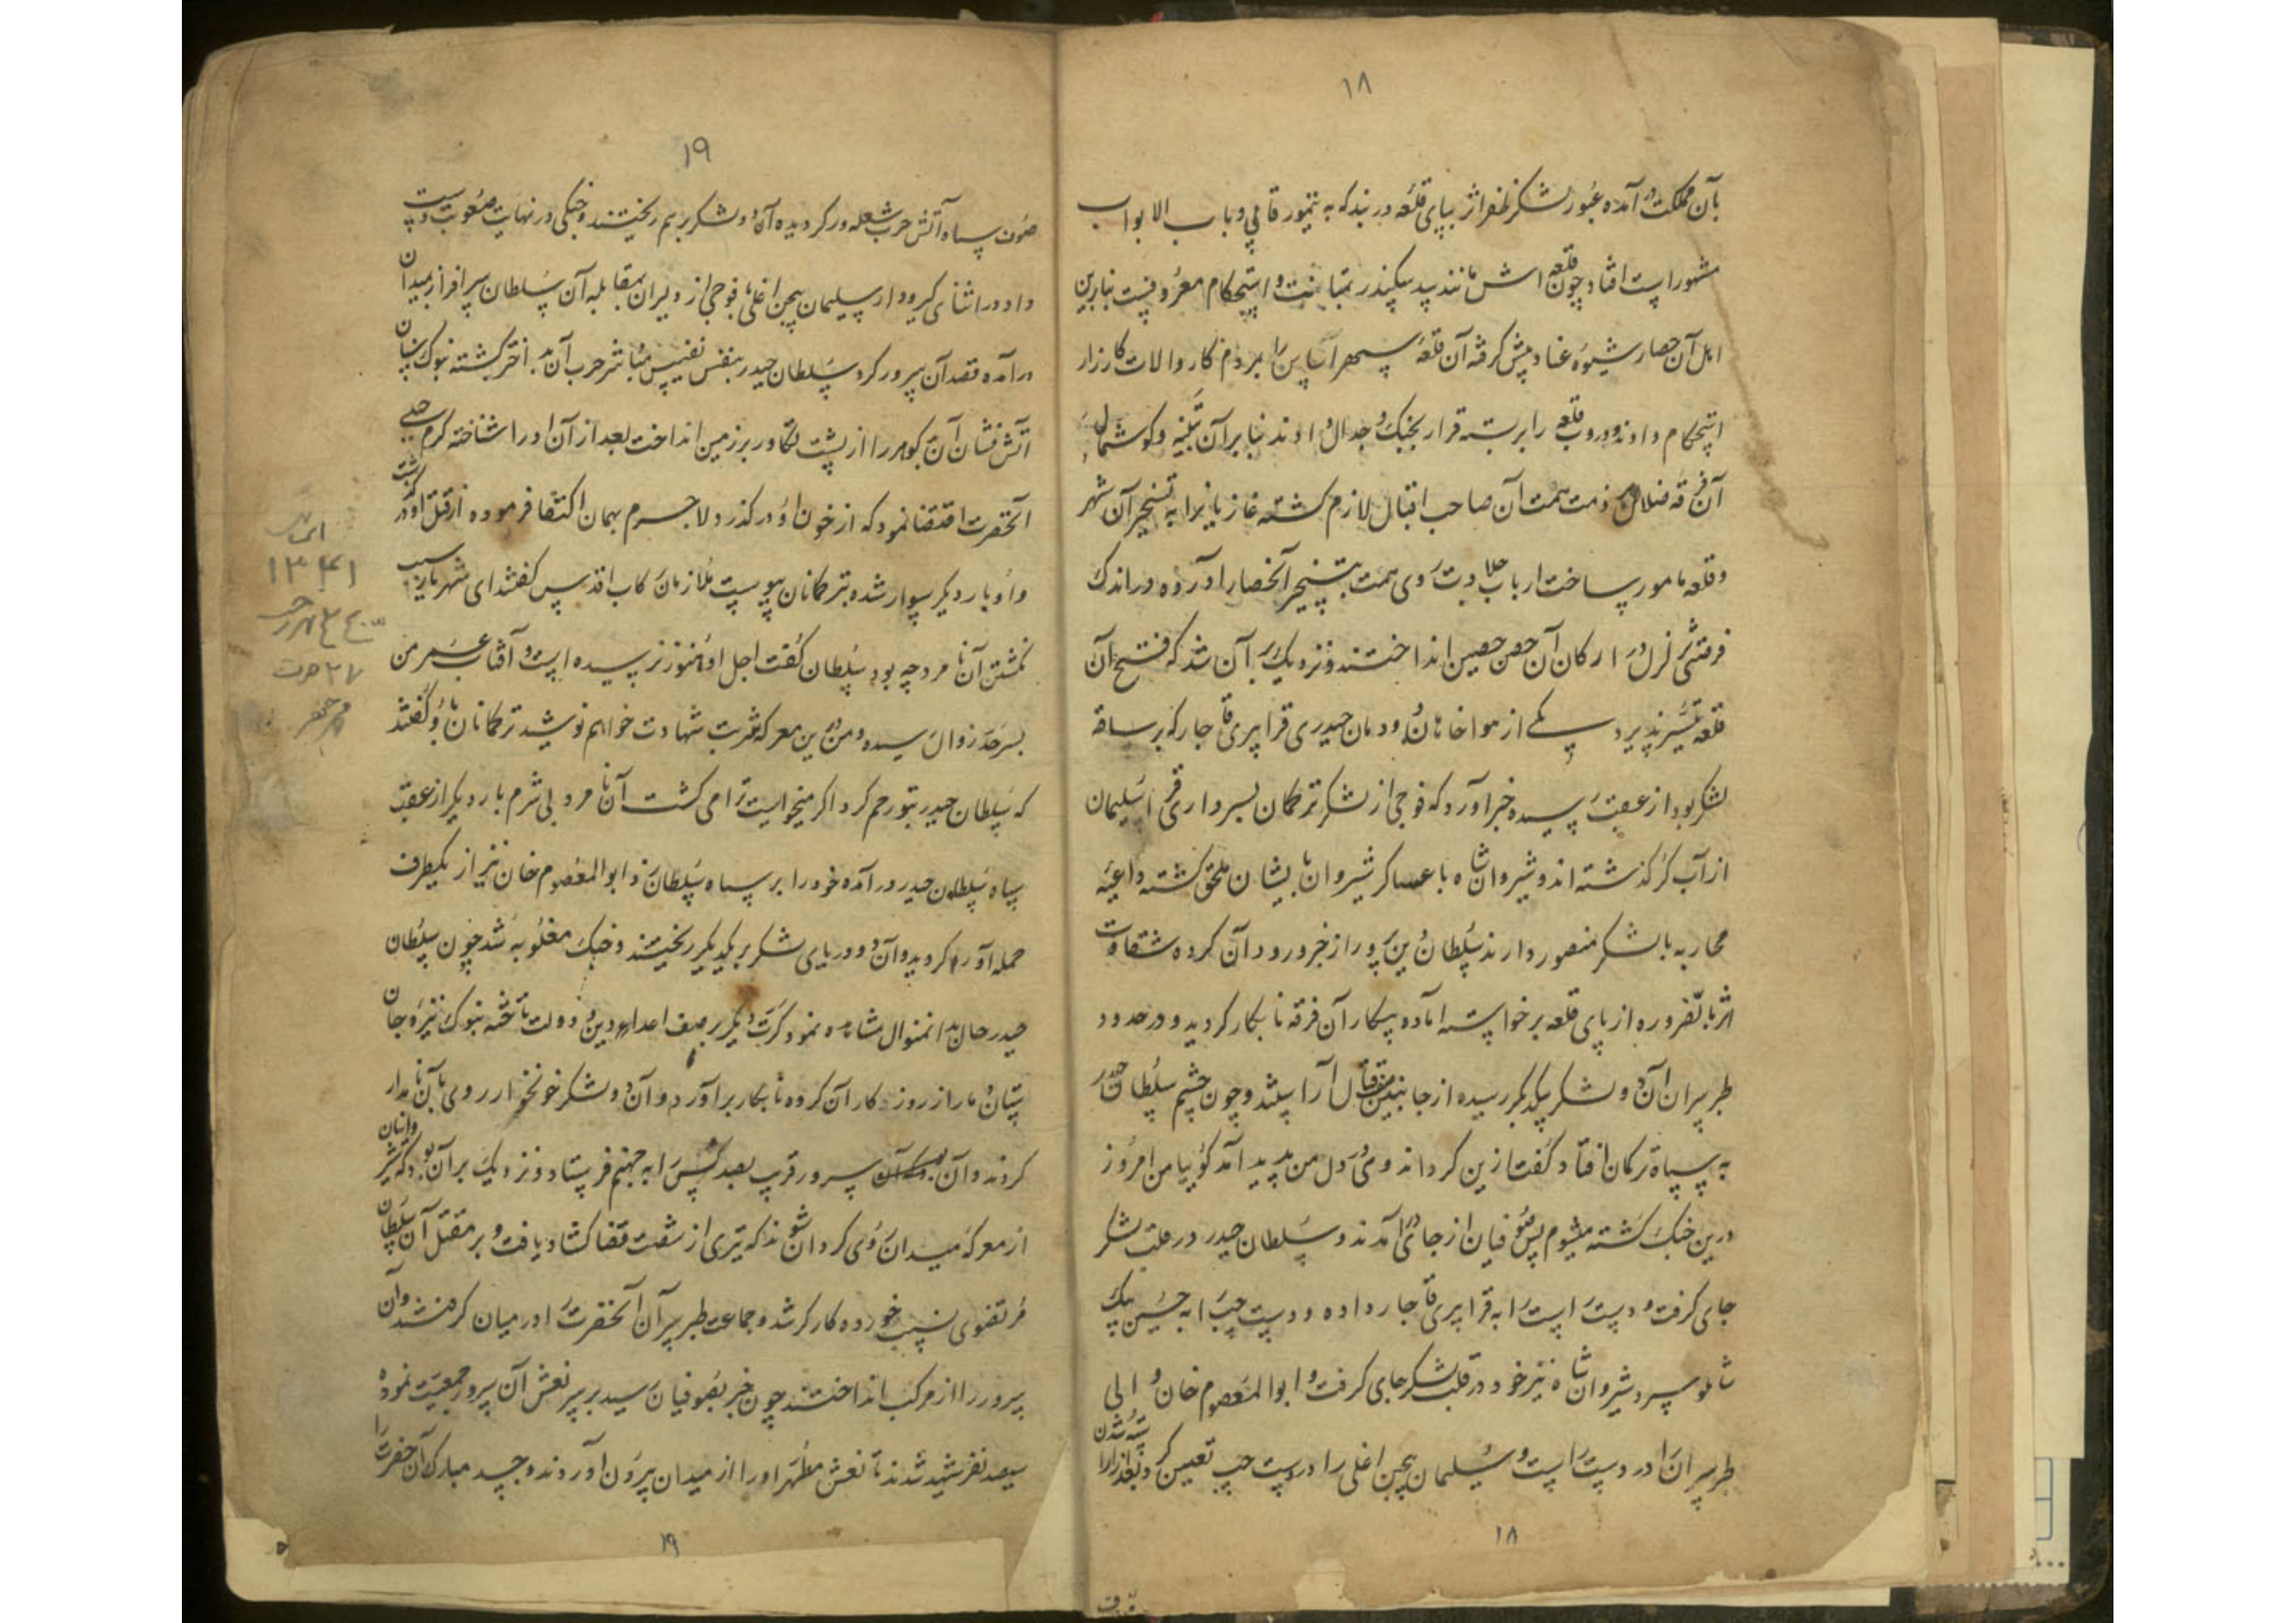 ۱۸
بآن مملکت در آمده عبور لشکر ظفر اثر بپای قلعه دربند که به تیمور قاپی و باب الابواب
مشهور است افتاد چون قلعه اش مانند سد سکندر بمتانت و استحکام معروفست بنابرین
اهل آن حصار شیوه عناد پیش گرفته آن قلعه سپهر آسا را بمردم کار و الات کارزار
استحکام دادند و دروب قلعه را بربسته قرار بجنک و جدال دادند بنابرآن تنبیه و کوشمال
آن فرقه ضلال بر ذمت همت آن صاحب اقبال لازم کشته غازیانرا به تسخیر آن شهر
و قلعه مامور ساخت ارباب جلادت روی همت بتسخیر آنحصار آورده در اندک
فرصتی تزلزل در ارکان آن حصن حصین انداختند و نزدیک بر آن شد که فتح آن
قلعه تیسیر پذیرد یکی از هواخاهان دودمان حیدری قراپری قاجار که بر ساقه
لشکر بود از عقب رسیده خبر آورد که فوجی از لشکر ترکمان بسرداری سلیمان
از آب کر گذشته اند و شیروان شاه با عساکر شیروان بایشان ملحق کشته داعیه
محاربه با لشکر منصور دارند سلطان دین پرور از خبر ورود آن کروه شقاوت
اثر بالضروره از پای قلعه برخواسته اماده پیکار آن فرقه نابکار کردید و در حدود
طبرسران آن دو لشکر بیکدیگر رسیده از جانبین صف قتال آراستند و چون چشم سلطان حیدر
به سپاه ترکمان افتاد کفت ازین کرد اندوهی در دل من پدید آمد کوییا من امروز
درین جنک کشته میشوم پس صوفیان از جای در آمدند و سلطان حیدر در قلب لشکر
جای کرفت و دست راست را به قراپری قاجار داده و دست چپ را به حسین بیک
شاملو سپرد شیروان شاه نیز خود در قلب لشکر جای کرفت و ابوالمعصوم خان والی
طبرسران را در دست راست و سلیمان بیجن اغلی را در دست چپ تعیین کرد و بعد از آراسته شدن
۱۸
۱۹
صفوف سپاه آتش حرب شعله ور کردیده آن دو لشکر بر هم ریختند و جنکی در نهایت صعوبت دست
داد و در اثنای کیر و دار سلیمان بیجن اغلی با فوجی از دلیران بمقابله آن سلطان سرافراز بمیدان
درآمده قصد آن سرور کرد سلطان حیدر بنفس نفیس مباشر حرب آن بد اختر کشته بنوک سنان
آتش فشان آن بد کوهر را از پشت تکاور بر زمین انداخت بعد از آن او را شناخته کرم جبلی
آنحضرت اقتضا نمود که از خون او درگذرد لاجرم بهمان اکتفا فرموده از قتل او در گذشت
و او بار دیگر سوار شده بترکمانان پیوست ملازمان رکاب اقدس کفتند ای شهریار سبب
نکشتن آن نامرد چه بود سلطان کفت اجل او هنوز نرسیده است و آفتاب عمر من
بسرحد زوال رسیده و من درین معرکه شربت شهادت خواهم نوشید ترکمانان باو گفتند
که سلطان حیدر بتو رحم کرد اکر میخواست ترا می کشت آن نامرد بی شرم بار دیکر از عقب
سپاه سلطان حیدر درآمده خود را بر سپاه سلطان زد ابوالمعصوم خان نیز از یکطرف
حمله آور کردید و آن دو دریای لشکر بر یکدیکر ریختند و جنک مغلوبه شد چون سلطان
حیدر حال بدانمنوال مشاهده نمود کرت دیکر بر صف اعداء دین و دولت تاخته بنوک نیزه جان
ستان دمار از روزکار آن کروه نابکار برآورد و آن دو لشکر خونخوار روی بآن نامدار
کردند و آن سرور قریب بصد کس را به جهنم فرستاد و نزدیک بر آن بود که شیروانیان
از معرکه میدان روی کردان شوند که تیری از شست قضا کشاد یافت و بر مقتل آن سلطان
مرتضوی نسب خورده کارکر شد و جماعت طبرسران آنحضرت را در میان کرفتند و آن
سرور را از مرکب انداختند چون خبر بصوفیان رسید بر سر نعش آن سرور جمعیت نموده
سیصد نفر شهید شدند تا نعش مطهر او را از میدان بیرون آوردند و جسد مبارک آن حضرت را
۱۹
۱۳۴۱